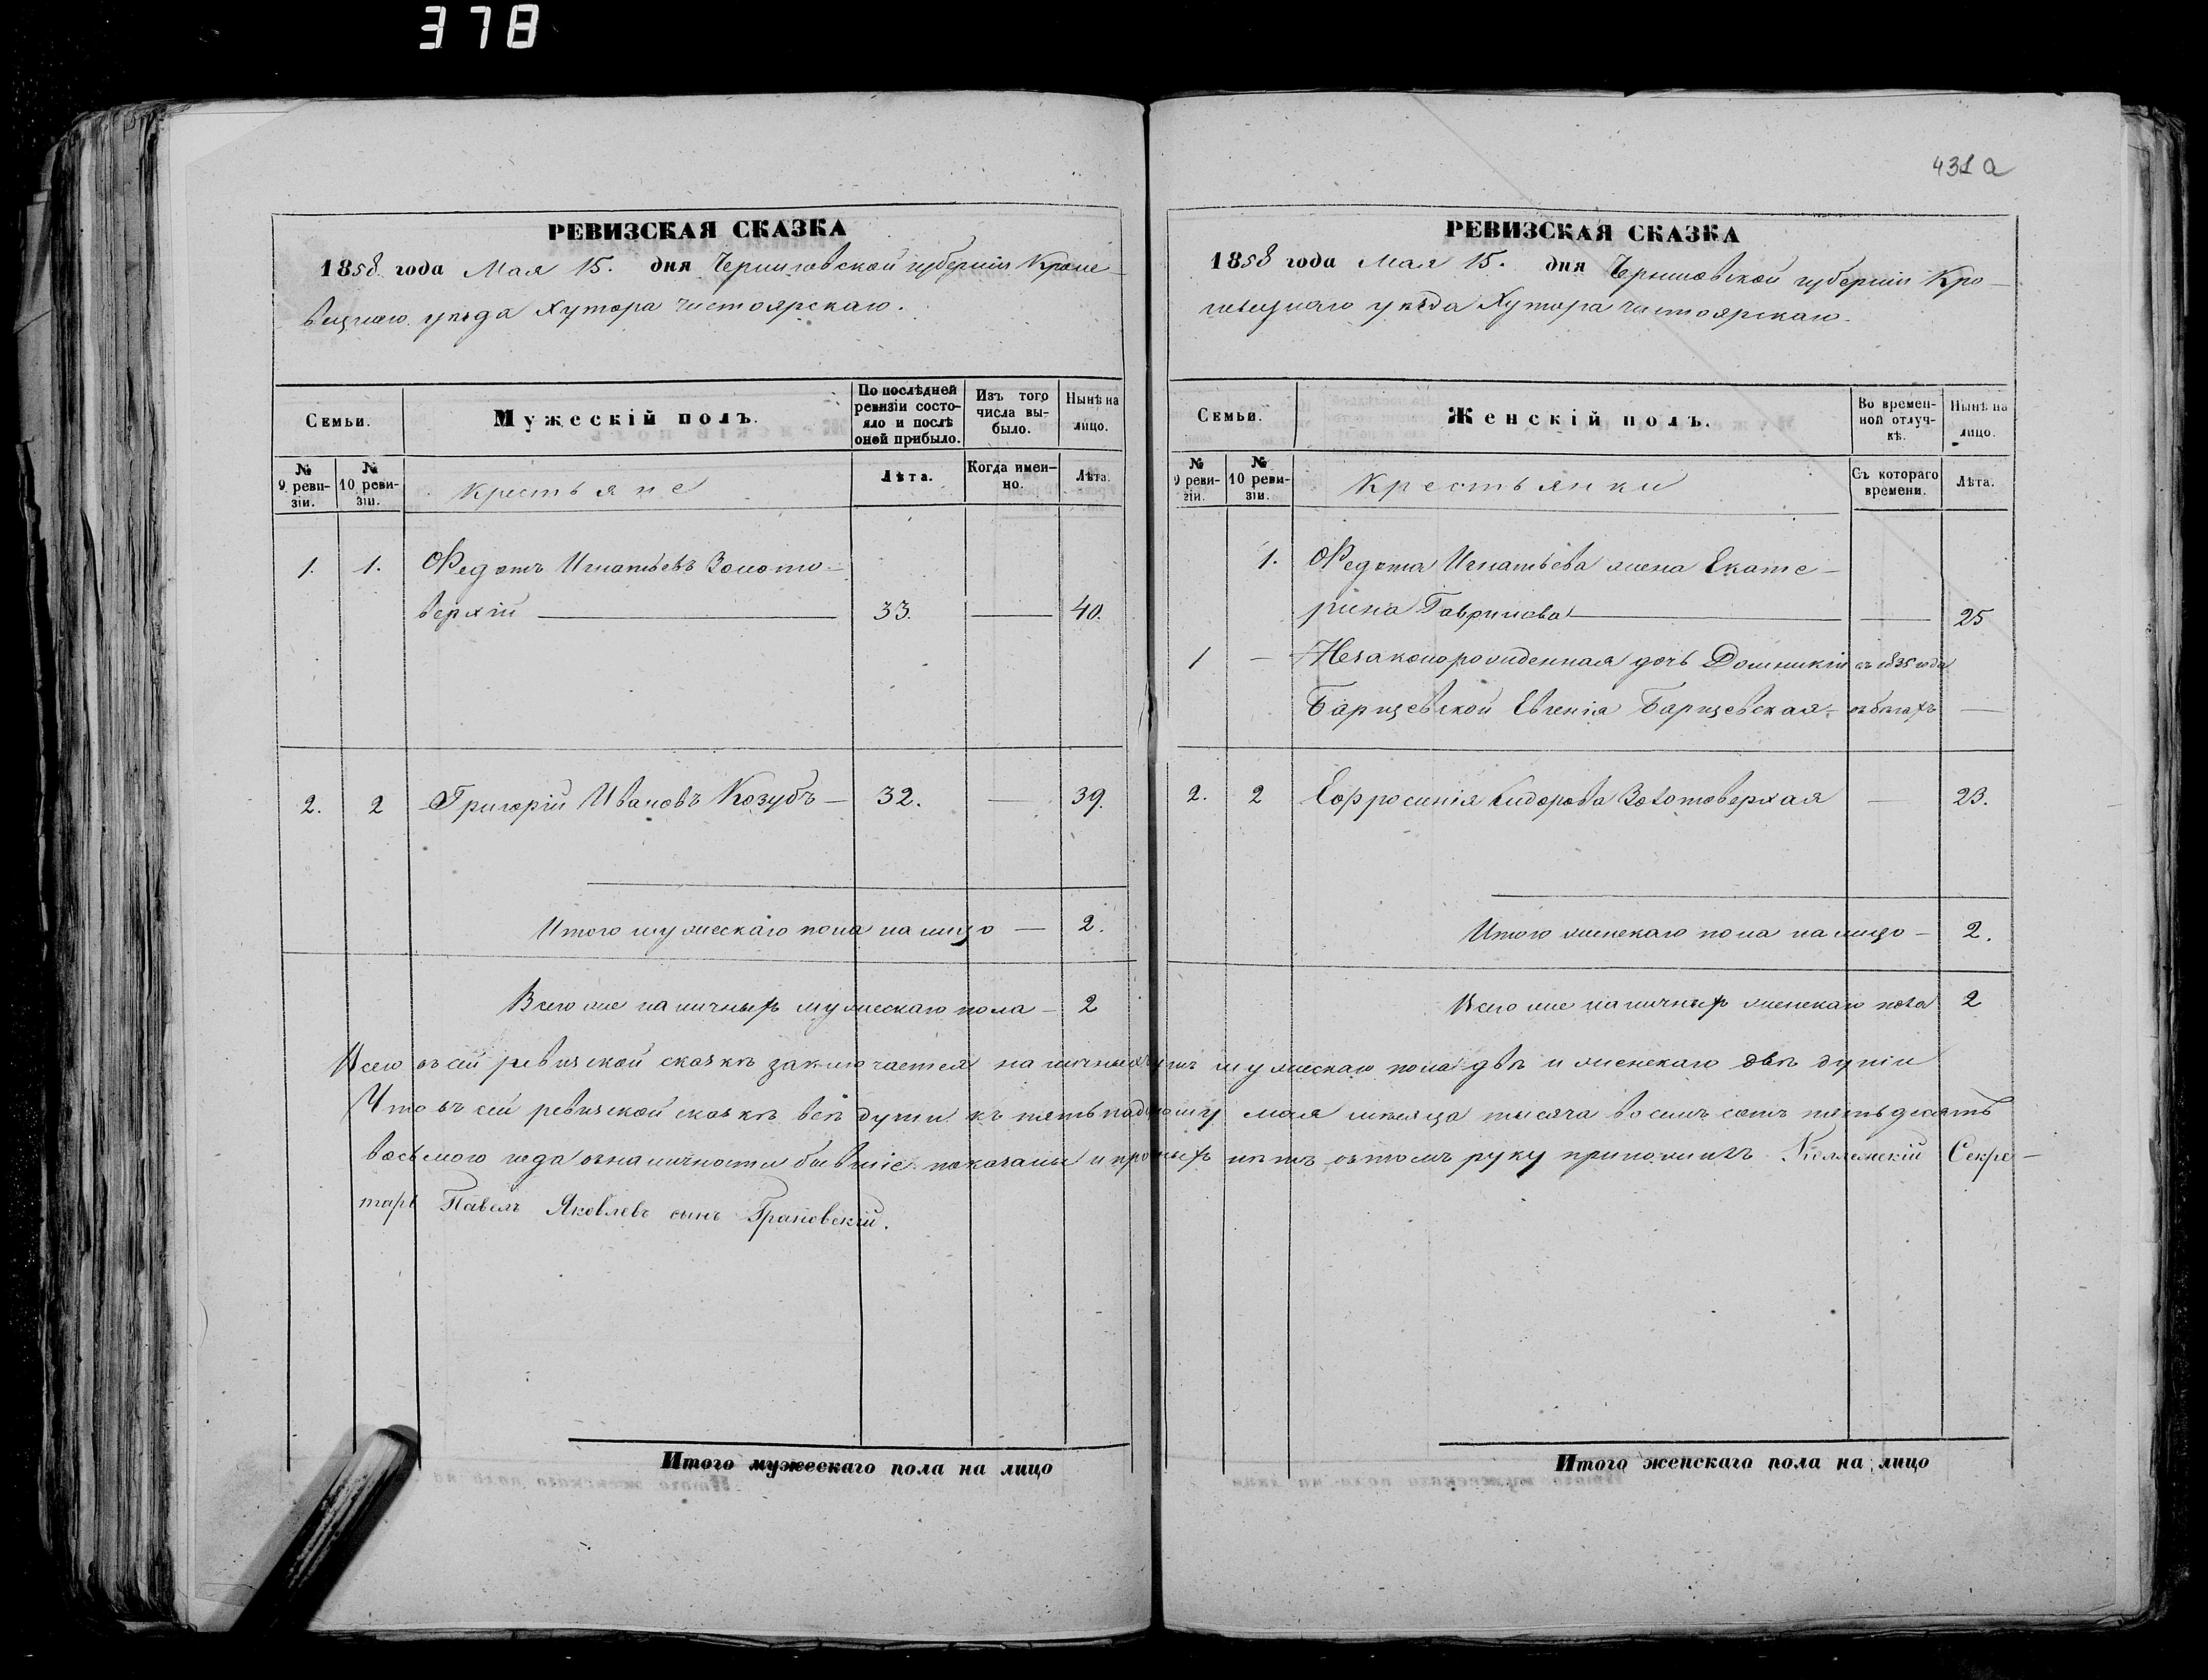 378
431а
РЕВИЗСКАЯ СКАЗКА
1858 года Мая 15. дня Черниговской губерніи Кроле-
вецкаго уѣзда Хутора Чистоярскаго.
Семьи.
Мужескій полъ.
По послѣдней ревизіи состояло и послѣ оной прибыло.
Изъ того числа выбыло.
Нынѣ на лицо.
№ 9 реви-зіи.
№ 10 реви-зіи.
Крестьяне
Лѣта.
Когда имен-но.
Лѣта.
1. 1. Федотъ Игнатьевъ Золото-
верхій — 33. — 40.
2. 2 Григорій Ивановъ Козубъ — 32. — 39.
Итого мужескаго пола на лицо — 2.
Всего же наличныхъ мужескаго пола — 2
РЕВИЗСКАЯ СКАЗКА
1858 года Мая 15. дня Черниговской губерніи Кро-
левецкаго уѣзда Хутора Чистоярскаго.
Семьи.
Женскій полъ.
Во времен-ной отлуч-кѣ.
Нынѣ на лицо.
№ 9 реви-зіи.
№ 10 реви-зіи.
Крестьянки
Съ котораго времени.
Лѣта.
1. Федота Игнатьева жена Екате-
рина Гаврилова — — 25
1 — Незаконорожденная дочь Домникіи съ 1835 года
Барщевской Евгенія Барщевская — въ бѣгахъ —
2. 2 Ефросинія Сидорова Золотоверхая — 23.
Итого женскаго пола на лицо — 2.
Всего же наличныхъ женскаго пола 2
Всего въ сей ревизской сказкѣ заключается наличныхъ душъ мужескаго пола двѣ и женскаго двѣ души
Что въ сей ревизской сказкѣ всѣ души къ пятьнадцатому мая мѣсяца тысяча восемь сотъ пятьдесятъ
восьмого года въ наличности бывшіе показаны и прочихъ нѣтъ въ томъ руку приложилъ Коллежскій Секре-
тарь Павелъ Яковлевъ сынъ Грановскій.
Итого мужескаго пола на лицо
Итого женскаго пола на лицо